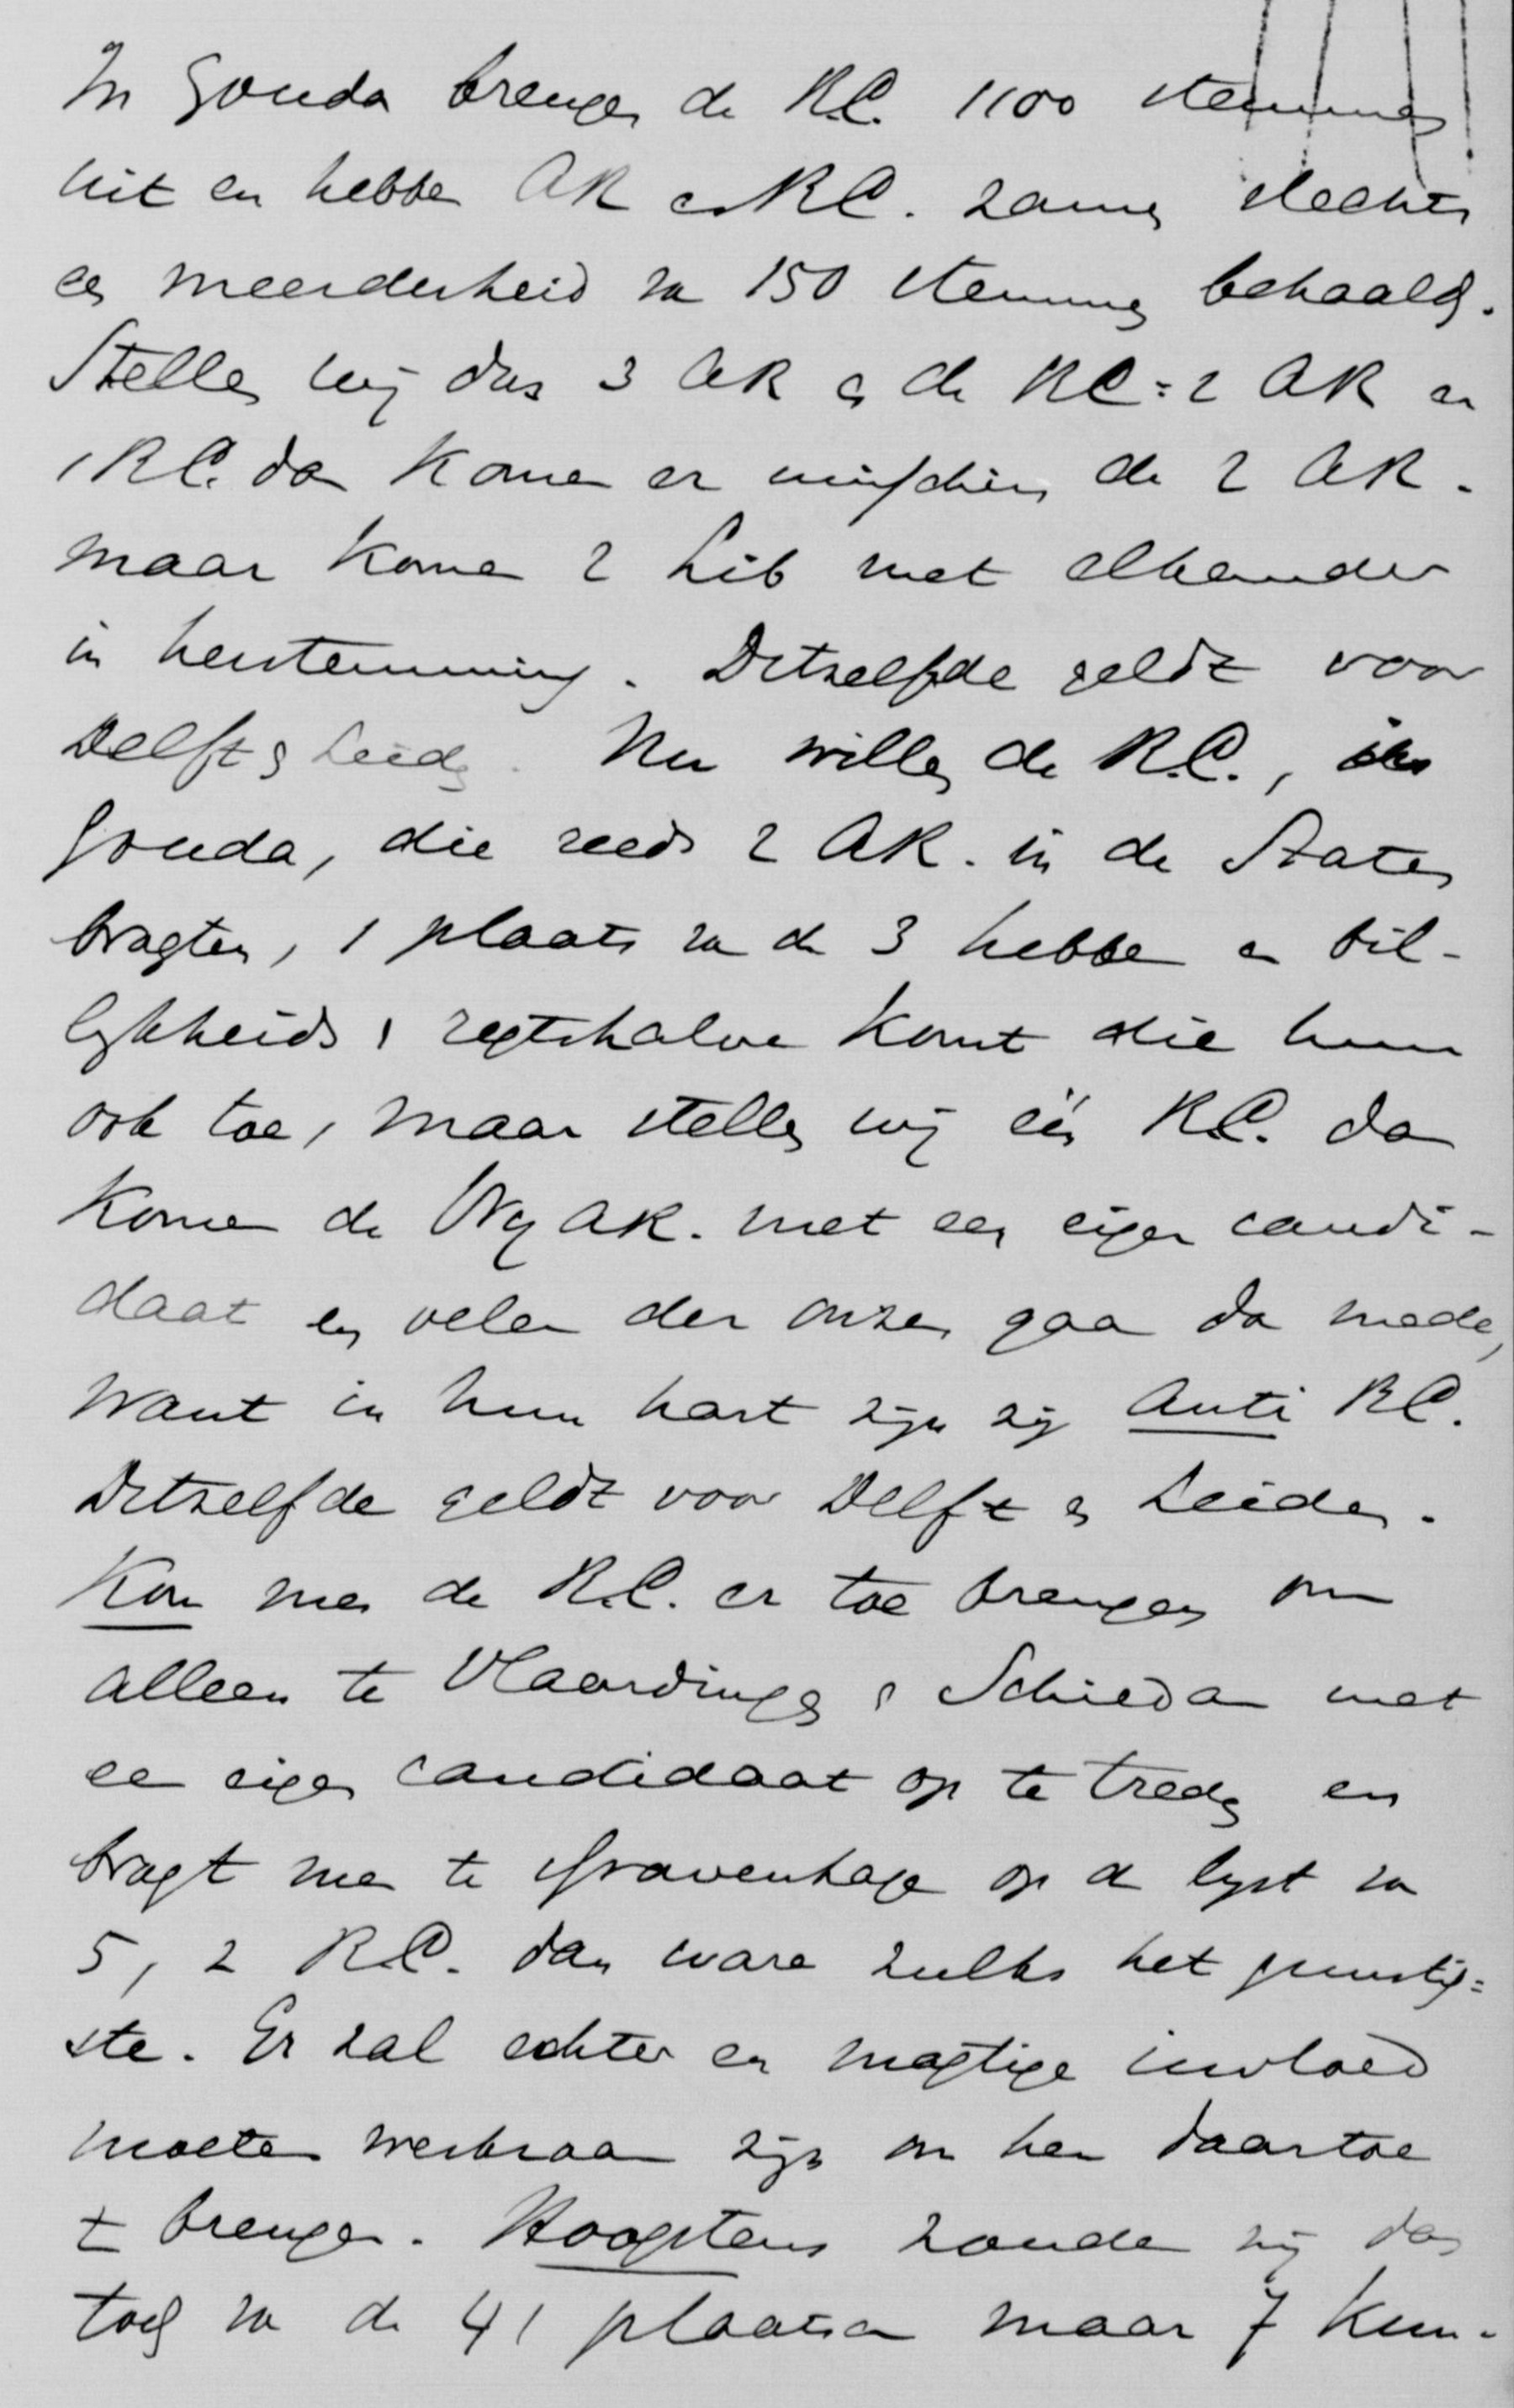 In Gouda brengen de R.C. 1100 stemmen
uit en hebben AR en RC. zamen slechts
een meerderheid van 150 stemmen behaald.
Stellen wij dus 3 AR en de RC = 2 AR en
1 R.C. dan komen er misschien de 2 AR.
maar komen 2 Lib met elkander
in herstemming. Ditzelfde geldt voor
Delft en Leiden. Nu willen de R.C., in
Gouda, die reeds 2 AR. in de Staten
bragten, 1 plaats van de 3 hebben en bil-
lykheids & regtshalve komt die hun
ook toe, maar stellen wij één R.C. dan
komen de Vrij AR. met een eigen candi-
daat en velen der onzen gaan dan mede,
want in hun hart zijn zij Anti RC.
Ditzelfde geldt voor Delft en Leiden.
Kon men de R.C. er toe brengen om
alleen te Vlaardingen & Schiedam met
een eigen candidaat op te treden en
bragt men te 'sGravenhage op de lyst van
5, 2 R.C. dan ware zulks het gunstig=
ste. Er zal echter een magtige invloed
moeten werkzaam zijn om hen daartoe
te brengen. Hoogstens zouden zij dan
toch van de 41 plaatsen maar 7 kun-